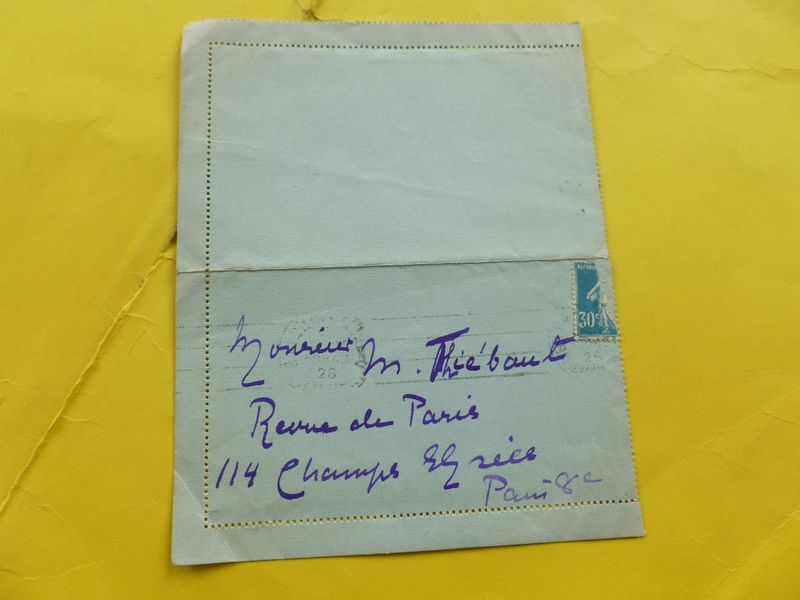 REPUBLIQ
30c
26
26
Monsieur M. Thiébaut
Revue de Paris
114 Champs Elysées
Paris 8e